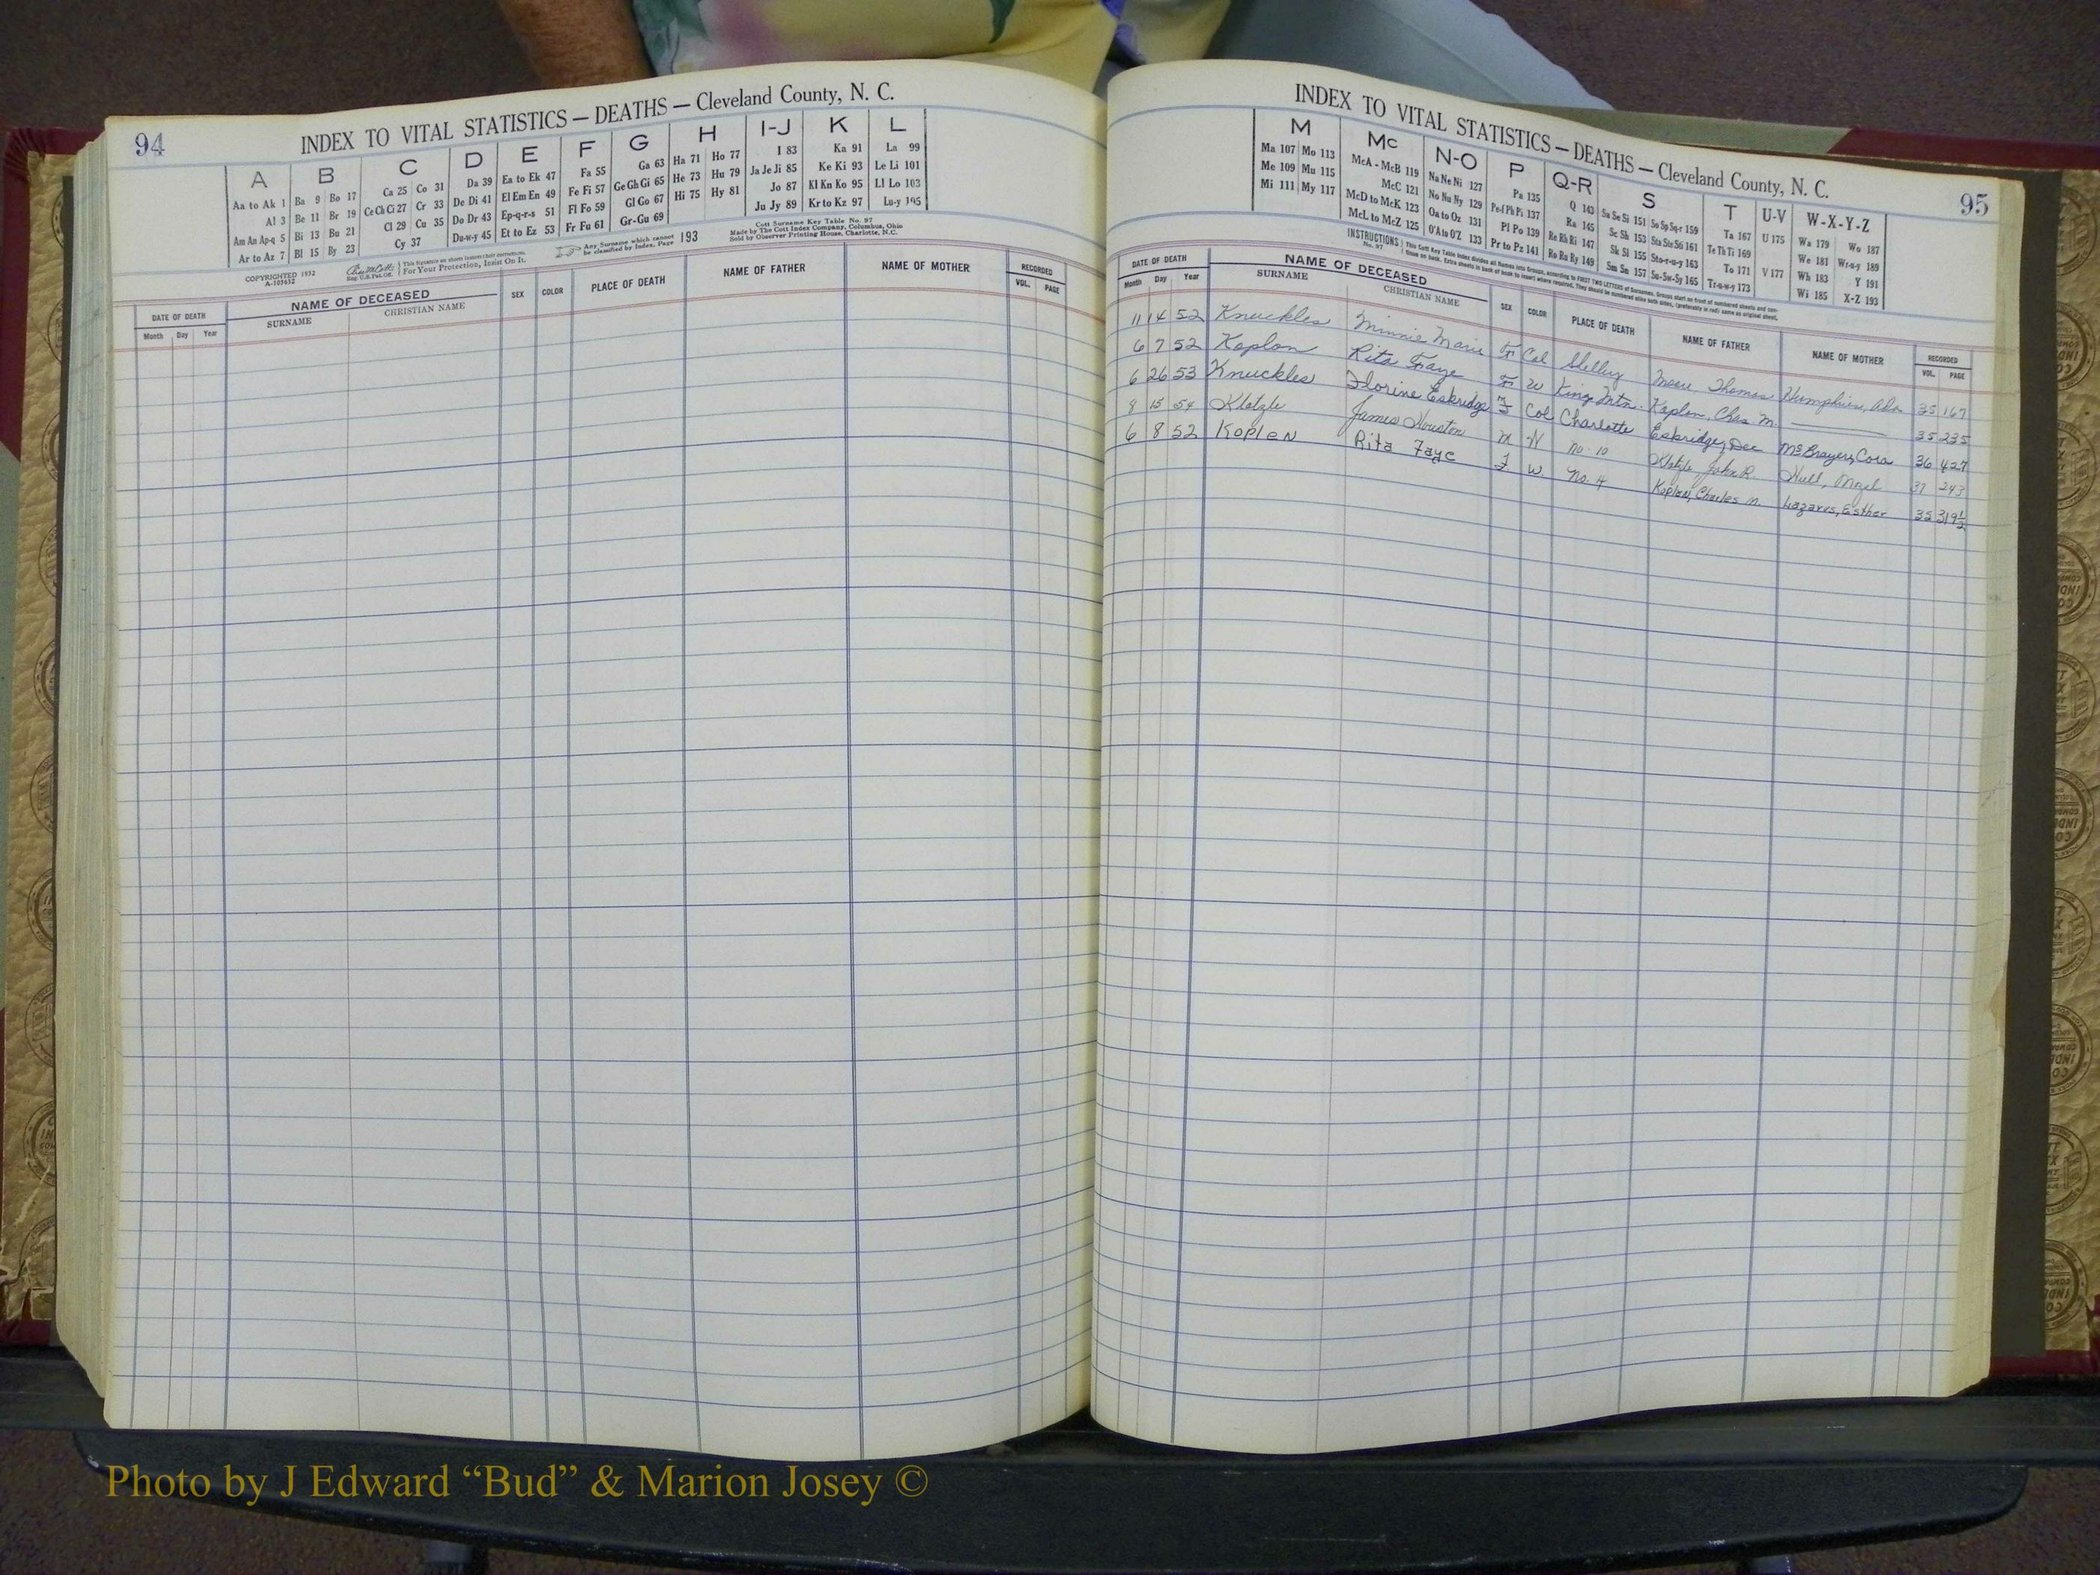 94
INDEX TO VITAL STATISTICS — DEATHS — Cleveland County, N. C.
A B C D E F G H I-J K L
Aa to Ak 1 Ba 9 Bo 17 Ca 25 Co 31 Da 39 Ea to Ek 47 Fa 55 Ga 63 Ha 71 Ho 77 I 83 Ka 91 La 99
Al 3 Be 11 Br 19 Ce Ch Ci 27 Cr 33 De Di 41 El Em En 49 Fe Fi 57 Ge Gh Gi 65 He 73 Hu 79 Ja Je Ji 85 Ke Ki 93 Le Li 101
Am An Ap-q 5 Bi 13 Bu 21 Cl 29 Cu 35 Do Dr 43 Ep-q-r-s 51 Fl Fo 59 Gl Go 67 Hi 75 Hy 81 Jo 87 Kl Kn Ko 95 Ll Lo 103
Ar to Az 7 Bl 15 By 23 Cy 37 Du-w-y 45 Et to Ez 53 Fr Fu 61 Gr-Gu 69 Ju Jy 89 Kr to Kz 97 Lu-y 105
COPYRIGHTED 1932
A-105632
Reg. U.S. Pat. Off.
This Signature on sheets insures their correctness.
For Your Protection, Insist On It.
Any Surname which cannot be classified by Index. Page 193
Cott Surname Key Table No. 97
Made by The Cott Index Company, Columbus, Ohio
Sold by Observer Printing House, Charlotte, N.C.
DATE OF DEATH NAME OF DECEASED SEX COLOR PLACE OF DEATH NAME OF FATHER NAME OF MOTHER RECORDED
Month Day Year SURNAME CHRISTIAN NAME VOL. PAGE
INDEX TO VITAL STATISTICS — DEATHS — Cleveland County, N. C.
95
M Mc N-O P Q-R S T U-V W-X-Y-Z
Ma 107 Mo 113 McA - McB 119 Na Ne Ni 127 Pa 135 Q 143 Sa Se Si 151 So Sp Sq-r 159 Ta 167 U 175 Wa 179 Wo 187
Me 109 Mu 115 McC 121 No Nu Ny 129 Pe-f Ph Pi 137 Ra 145 Sc Sh 153 Sta Ste Sti 161 Te Th Ti 169 We 181 Wr-u-y 189
Mi 111 My 117 McD to McK 123 Oa to Oz 131 Pl Po 139 Re Rh Ri 147 Sk Sl 155 Sto-r-u-y 163 To 171 V 177 Wh 183 Y 191
McL to McZ 125 O'A to O'Z 133 Pr to Pz 141 Ro Ru Ry 149 Sm Sn 157 Su-Sw-Sy 165 Tr-u-w-y 173 Wi 185 X-Z 193
INSTRUCTIONS No. 97 This Cott Key Table Index divides all Names into Groups, according to FIRST TWO LETTERS of Surnames. Groups start on front of numbered sheets and continue on back. Extra sheets in back of book to insert where required. They should be numbered alike both sides, (preferably in red) same as original sheet.
DATE OF DEATH NAME OF DECEASED SEX COLOR PLACE OF DEATH NAME OF FATHER NAME OF MOTHER RECORDED
Month Day Year SURNAME CHRISTIAN NAME VOL. PAGE
11 14 52 Knuckles Minnie Marie F Col Shelby Thomas Humphries, Ada 35 167
6 7 52 Koplon Rita Faye F W Kings Mtn. Koplon, Chas M. 35 235
6 26 53 Knuckles Florine Eskridge F Col Charlotte Eskridge, Dee McBrayer, Cora 36 427
8 15 54 Klotzle James Houston M W No. 10 Klotzle John R. Hull, 37 243
6 8 52 Koplen Rita Faye F W. No. 4 Koplen, Charles M. Lazarus, Esther 35 319½
Photo by J Edward “Bud” & Marion Josey ©